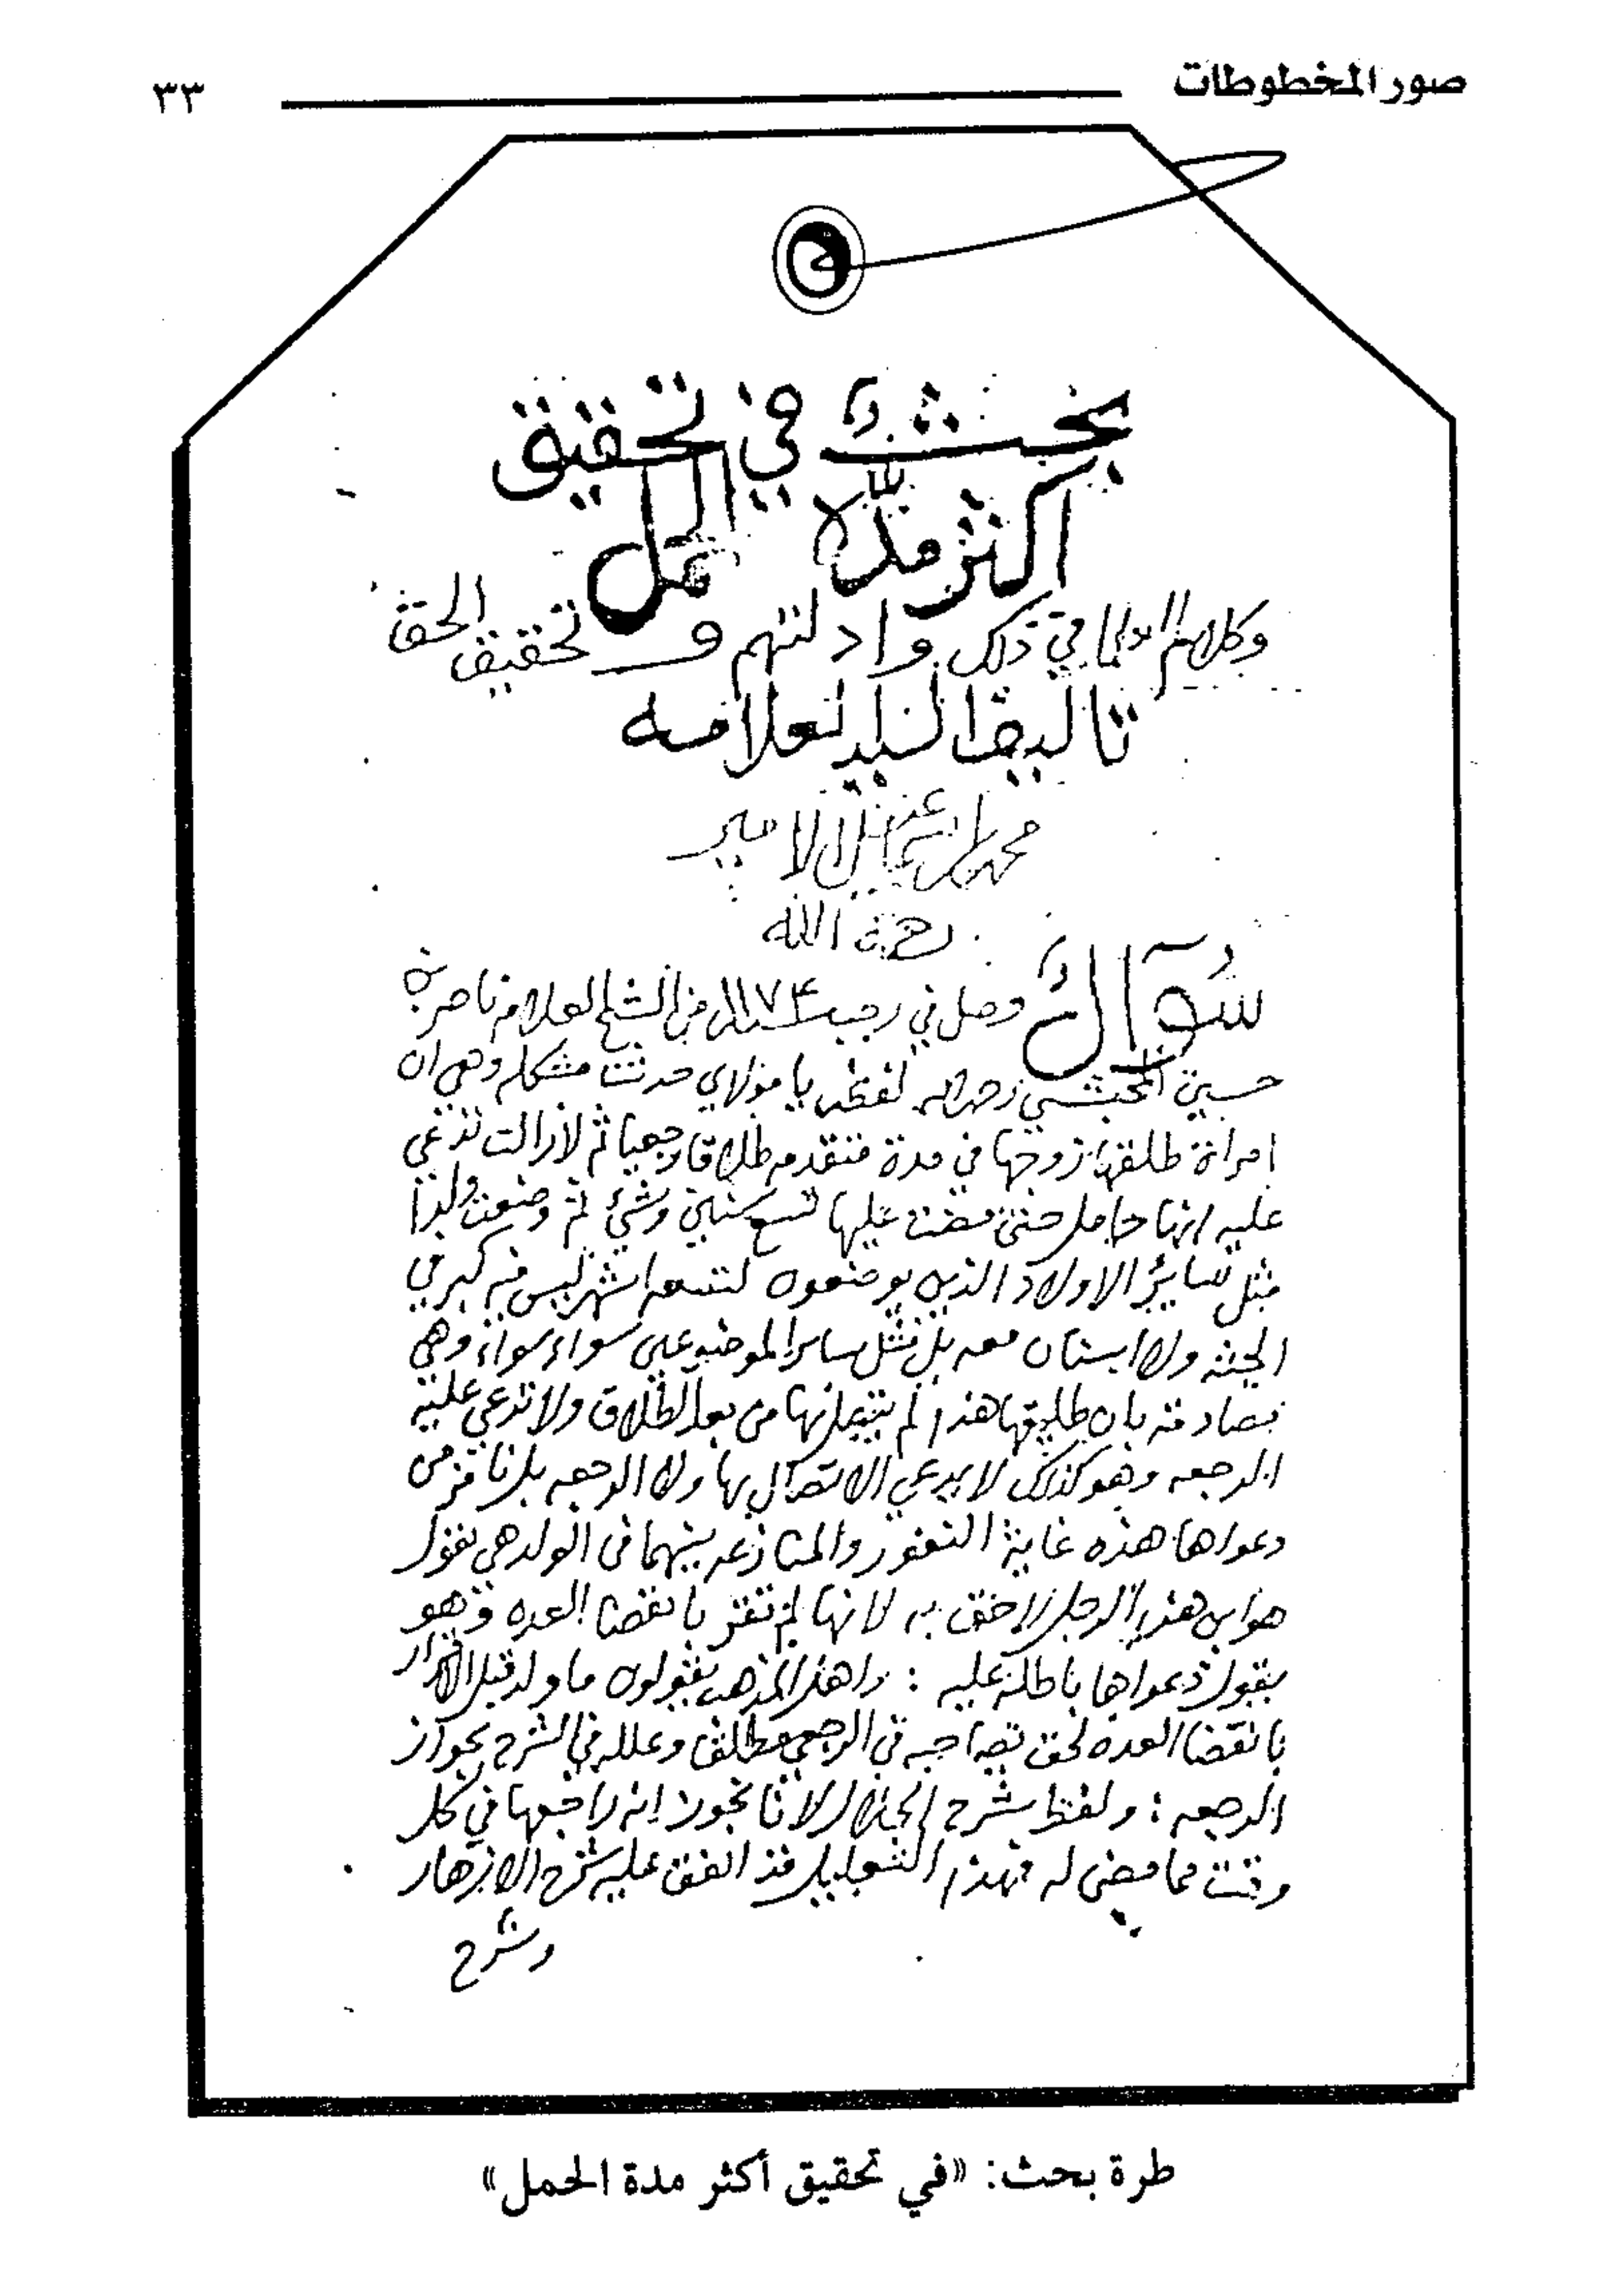 صور المخطوطات
٣٣
بحث في تحقيق
اكثر مدة الحمل
وكلام العلما في ذلك وادلتهم و تحقيق الحق
تاليف السيد العلامه
محمد بن اسمعيل الامير
رحمه الله
سُؤآلٌ وصل في رجب سنة ١١٧٤ من الشيخ العلامه ناصر بن
حسين المحبشي رحمه الله لفظه يا مولاي حدثت مشكله وهي ان
امراة طلقها زوجها في مدة متقدمه طلاقا رجعيا ثم لازالت تدعي
عليه انها حامل حتى مضت عليها تسع سنين وشيء ثم وضعت ولدا
مثل سائر الاولاد الذين يوضعون لتسعه اشهر ليس فيه كبر في
الجثه ولا اسنان معه بل مثل ساير الموضوعين سواء سواء وهي
مصادقه بان طليقها هذا لم يتصل بها من بعد الطلاق ولا تدعي عليه
الرجعه وهو كذلك لا يدعي الاتصال بها ولا الرجعه بل نافر من
دعواها هذه غاية النفور والمنازعه بينهما في الولد هي تقول
هو ابن هذا الرجل لاحق به لانها لم تقر بانقضا العده وهو
يقول دعواها باطلة عليه : واهل المذهب يقولون ما ولد قبل الاقرار
بانقضا العده لحق بصاحبه في الرجعي مطلقا وعلله في الشرح بجواز
الرجعه : ولفظ شرح الجلال لانا نجوز انه راجعها في كل
وقت مما مضى له فهذا التعليل قد اتفق عليه شرح الازهار
وشرح
طرة بحث: «في تحقيق أكثر مدة الحمل»